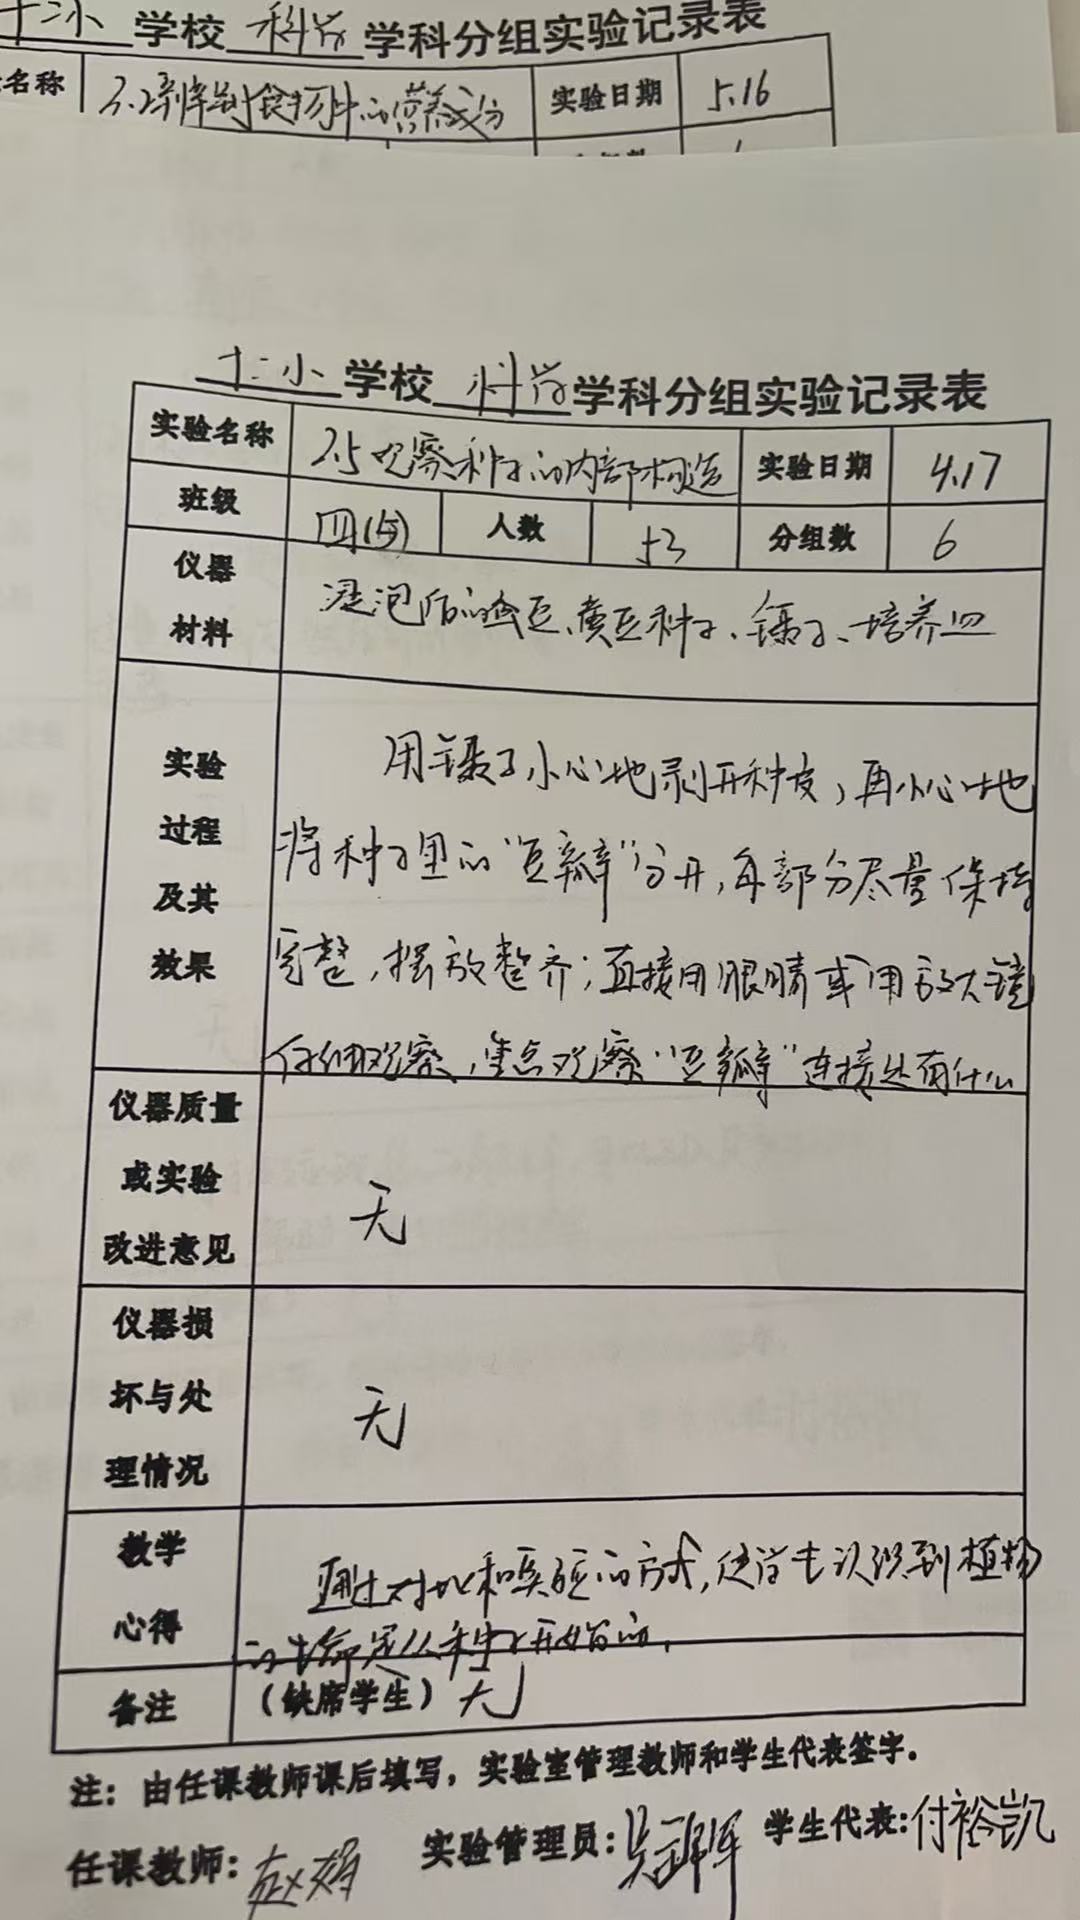 十二小 学校 科学 学科分组实验记录表
名称 2.2 食物中的营养成分 实验日期 5.16
十二小 学校 科学 学科分组实验记录表
实验名称 2.5观察种子的内部构造 实验日期 4.17
班级 四(5) 人数 53 分组数 6
仪器
材料
浸泡后的蚕豆、黄豆种子、镊子、培养皿
实验
过程
及其
效果
用镊子小心地剥开种皮，再小心地
将种子里的“豆瓣”分开，每部分尽量保持
完整，摆放整齐；直接用眼睛或用放大镜
仔细观察，重点观察“豆瓣”连接处有什么
仪器质量
或实验
改进意见
无
仪器损
坏与处
理情况
无
教学
心得
通过对比和实验的方式，使学生认识到植物
的生命是从种子开始的，
备注 （缺席学生）无
注：由任课教师课后填写，实验室管理教师和学生代表签字。
任课教师：赵娟 实验管理员：吴 学生代表：付裕凯